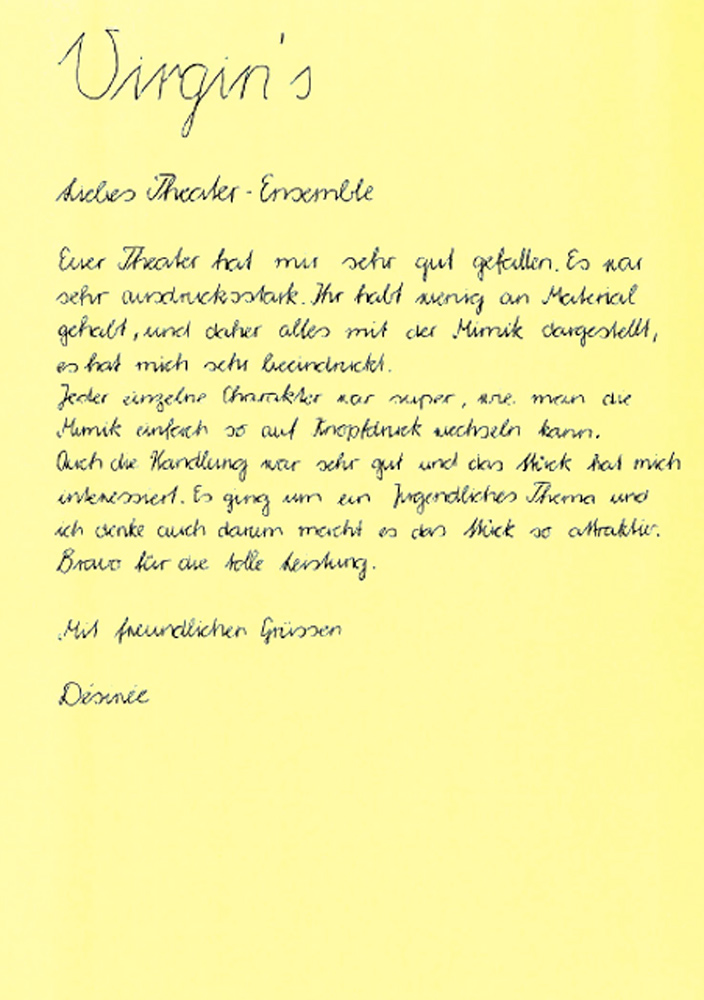 Virgin's
Liebes Theater-Ensemble
Euer Theater hat mir sehr gut gefallen. Es war
sehr ausdrucksstark. Ihr habt wenig an Material
gehabt, und daher alles mit der Mimik dargestellt,
es hat mich sehr beeindruckt.
Jeder einzelne Charakter war super, wie man die
Mimik einfach so auf Knopfdruck wechseln kann.
Auch die Handlung war sehr gut und das Stück hat mich
interessiert. Es ging um ein Jugendliches Thema und
ich denke auch darum macht es das Stück so attraktiv.
Bravo für die tolle Leistung.
Mit freundlichen Grüssen
Désirée